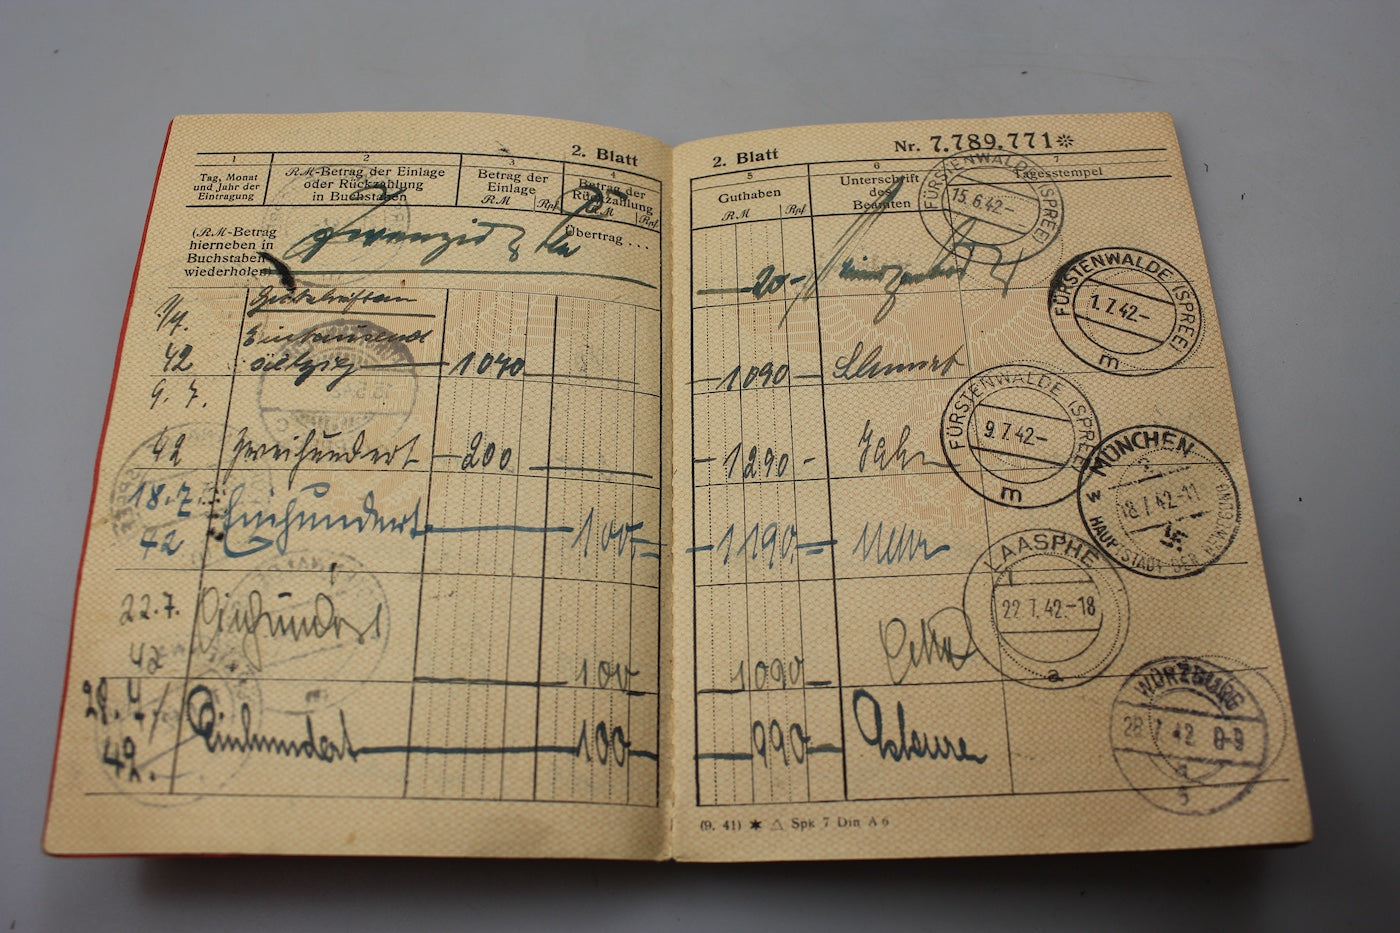 2. Blatt
1
2
3
4
Tag, Monat
und Jahr der
Eintragung
RM-Betrag der Einlage
oder Rückzahlung
in Buchstaben
Betrag der
Einlage
RM Rpf
Betrag der
Rückzahlung
RM Rpf
(RM-Betrag
hierneben in
Buchstaben
wiederholen)
Übertrag . . .
1/7.
42
Gutschriften
Eintausend
siebzig
1070
9. 7.
42
Zweihundert
200
18.7.
42
Einhundert
100
22.7.
42
Einhundert
100
28.7.
42.
Einhundert
100
2. Blatt
Nr. 7.789.771
5
6
7
Guthaben
RM Rpf
Unterschrift
des
Beamten
Tagesstempel
20
FÜRSTENWALDE (SPREE)
15.6.42-
1090
FÜRSTENWALDE (SPREE)
1.7.42-
m
1290
FÜRSTENWALDE (SPREE)
9.7.42-
m
1190
MÜNCHEN
18.7.42-11
HAUPTSTADT DER BEWEGUNG
1090
LAASPHE
22.7.42-18
a
990
WÜRZBURG
28.7.42 8-9
(9. 41) ✶ △ Spk 7 Din A 6